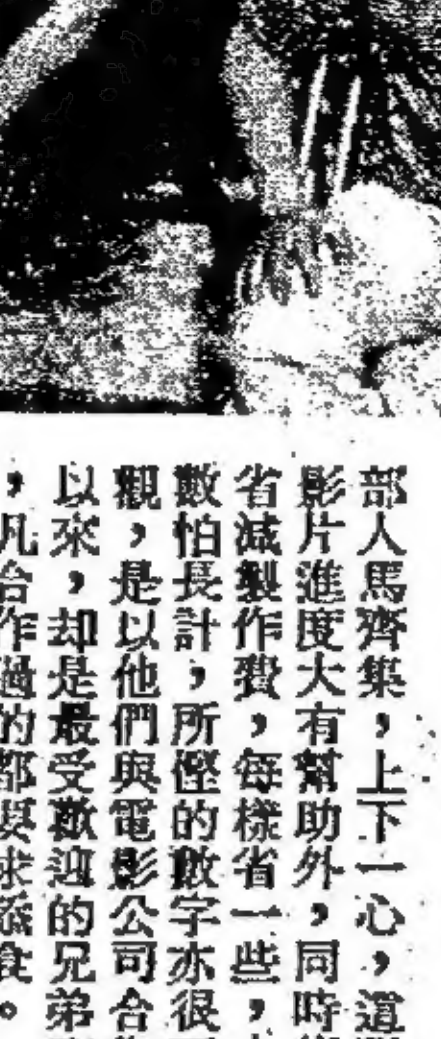 部人馬齊集，上下一心，這
影片進度大有幫助外，同時
省減製作費，每樣省一些，
數怕長計，所慳的數字亦很
觀，是以他們與電影公司合
以來，却是最受歡迎的兄弟
，凡合作過的都要求 食。